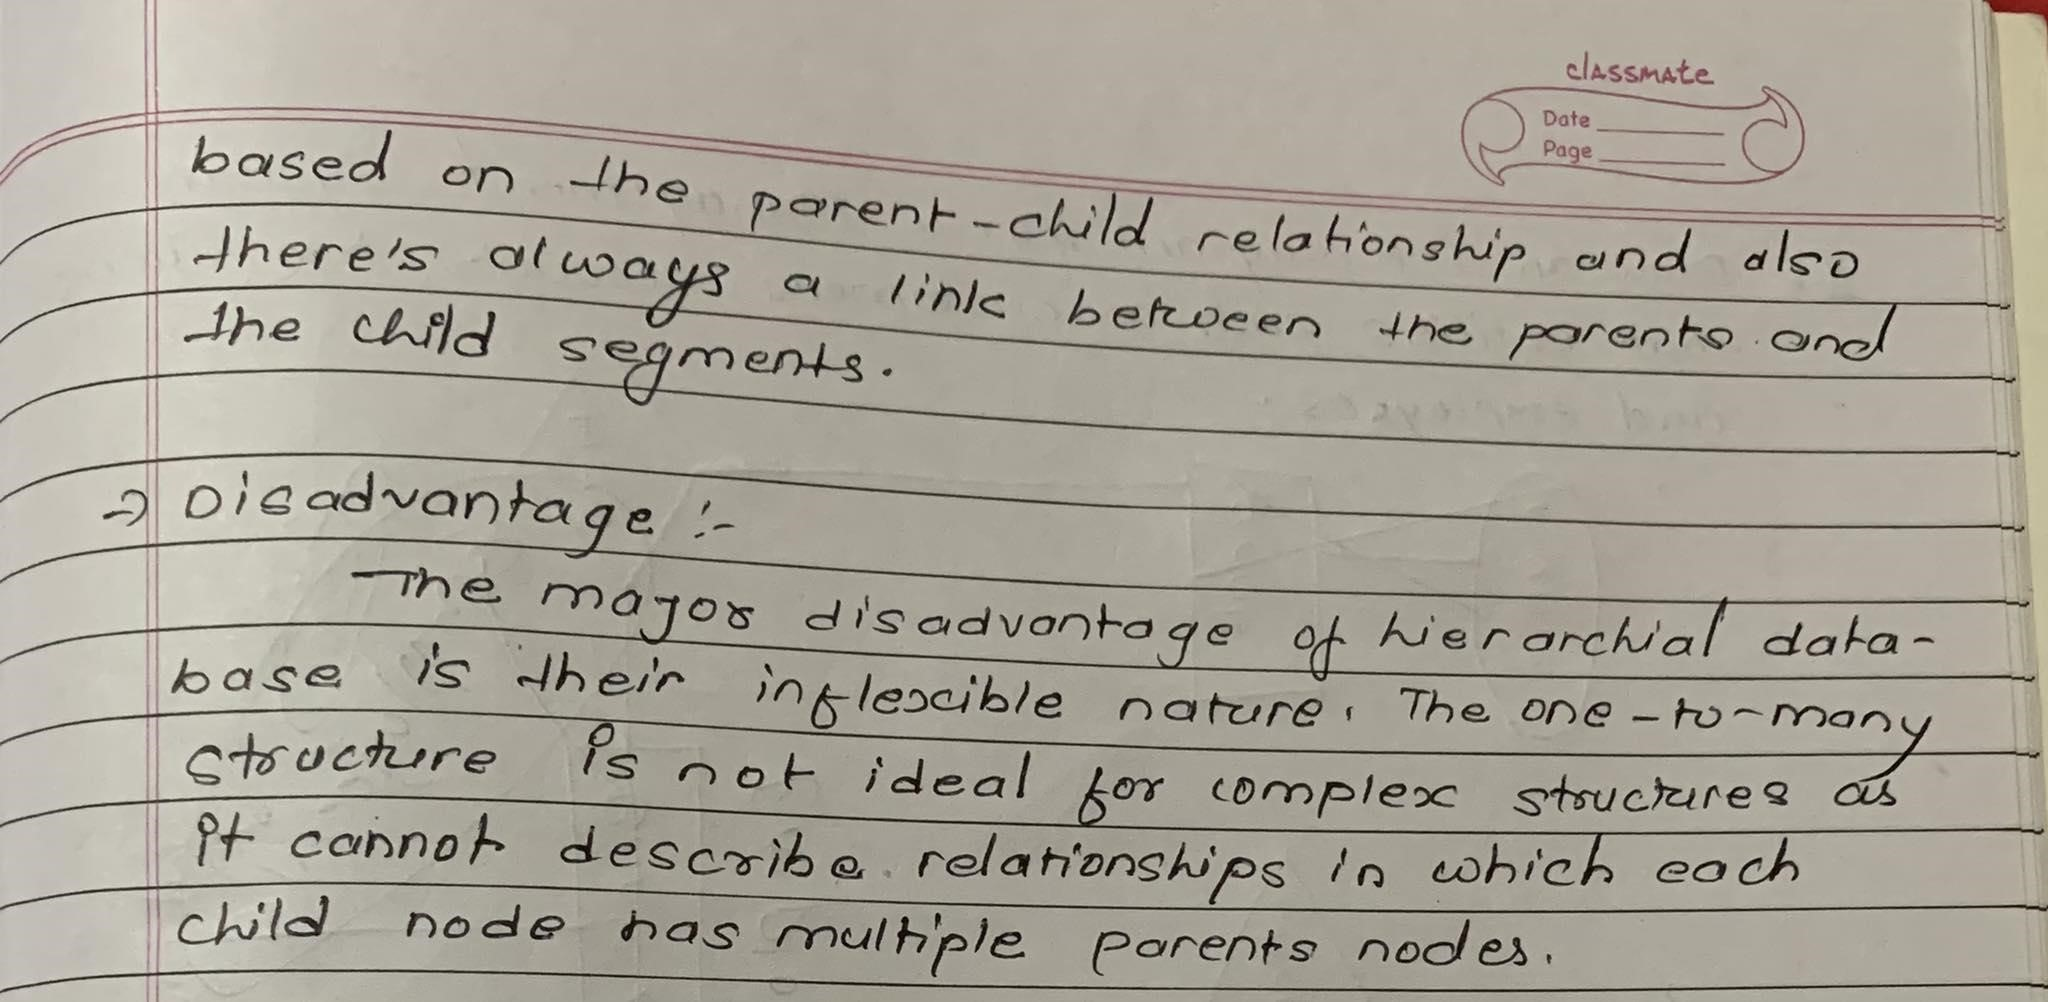 classmate
Date
Page
based on the parent-child relationship and also
there's always a link between the parents and
the child segments.
=) Disadvantage :-
The major disadvantage of hierarchial data-
base is their inflexible nature. The one-to-many
structure is not ideal for complex structures as
it cannot describe relationships in which each
child node has multiple parents nodes.